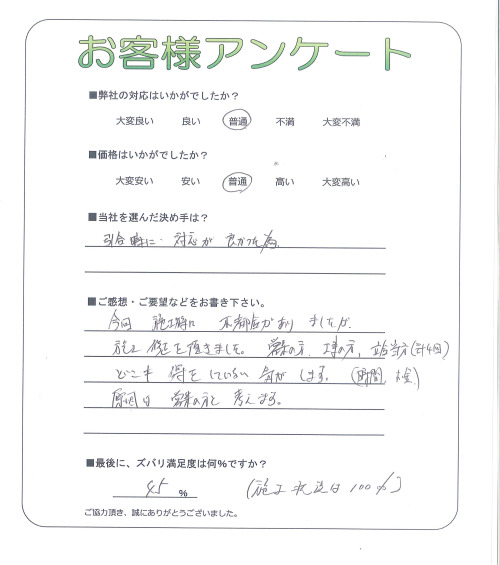 お客様アンケート
■弊社の対応はいかがでしたか？
大変良い 良い 普通 不満 大変不満
■価格はいかがでしたか？
大変安い 安い 普通 高い 大変高い
■当社を選んだ決め手は？
引合時に、対応が良かった為
■ご感想・ご要望などをお書き下さい。
今回 施工時に 不都合がありましたが、
施工修正を頂きました。営業の方、工事の方、当方(計4回)
どこも 得をしていない 気がします。(時間、お金)
原因は 営業の方と 考えます。
■最後に、ズバリ満足度は何％ですか？
45 % (施工状況は100%)
ご協力頂き、誠にありがとうございました。